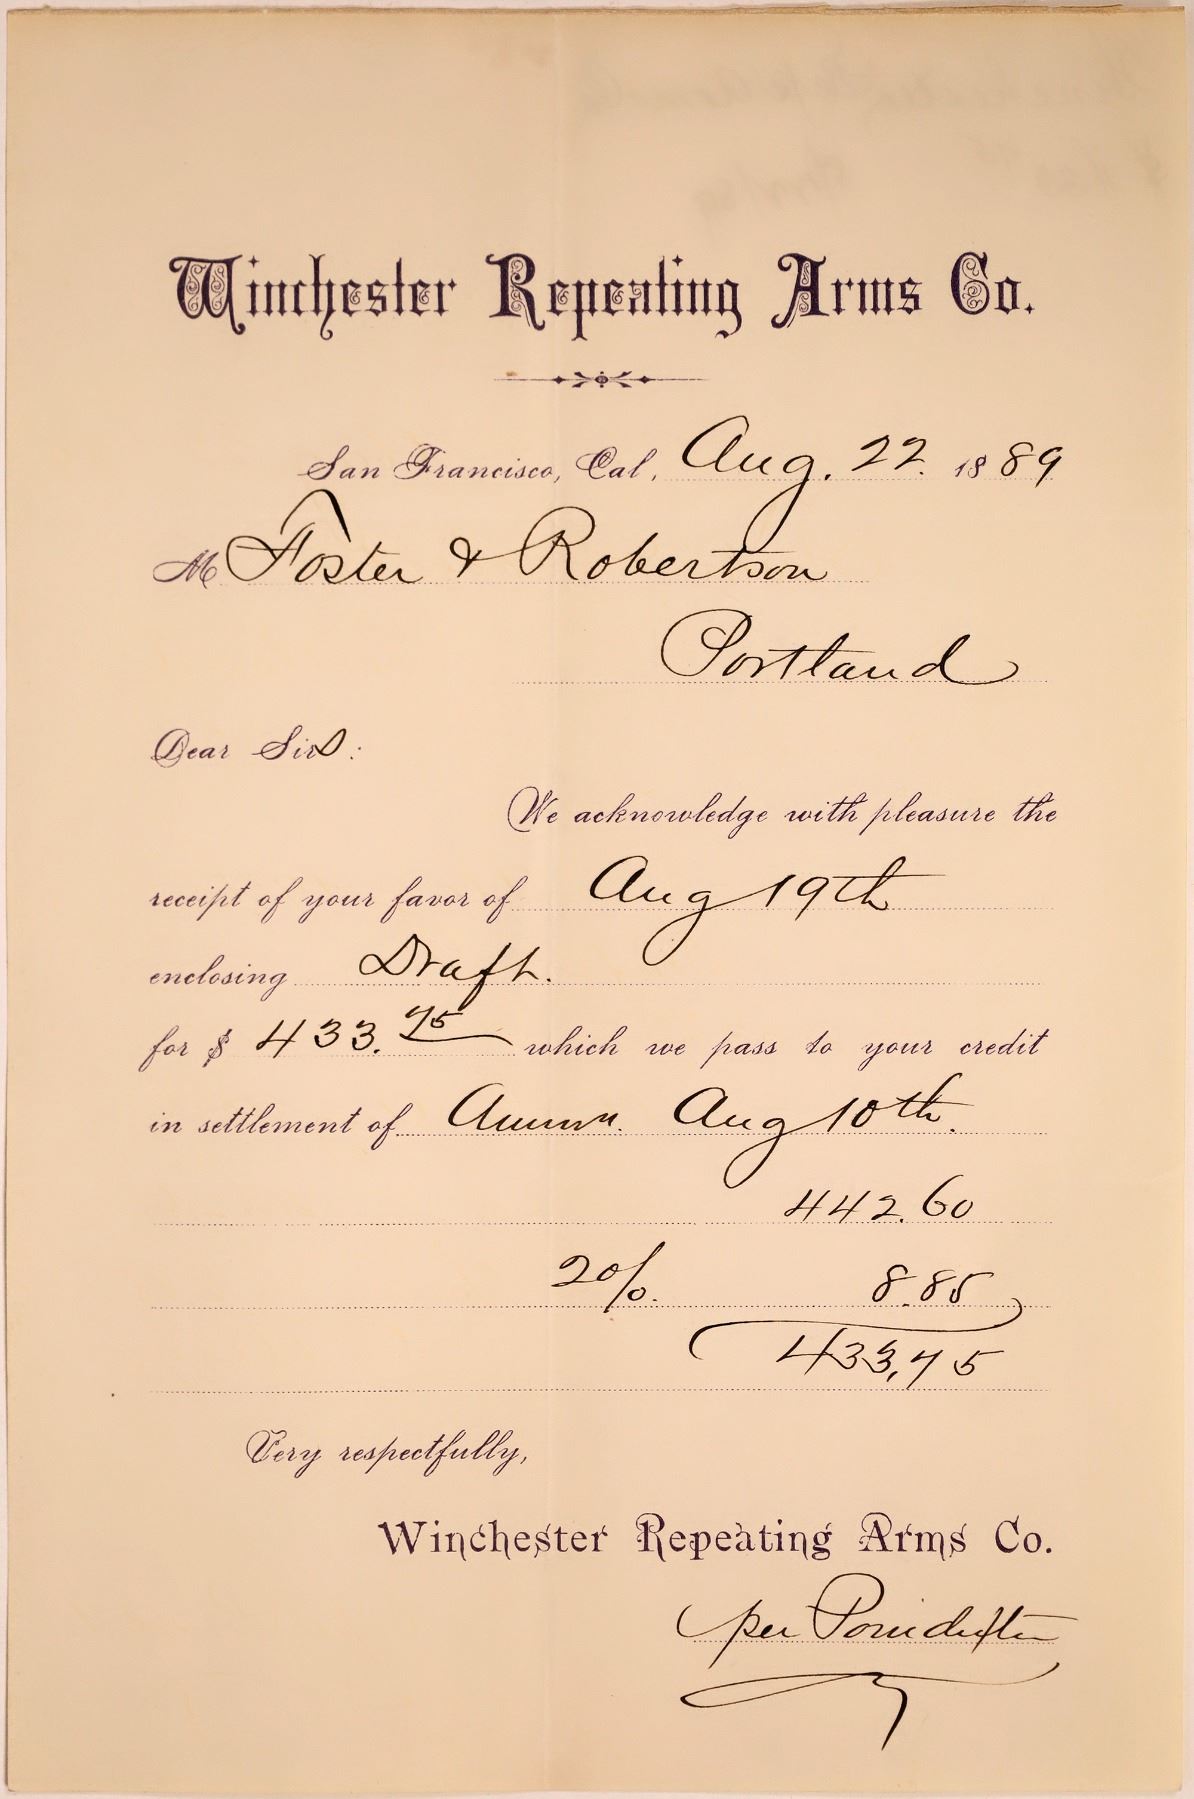 Winchester Repeating Arms Co.
San Francisco, Cal, Aug. 22. 1889
M Foster & Robertson
Portland
Dear Sirs:
We acknowledge with pleasure the
receipt of your favor of Aug 19th
enclosing Draft.
for $ 433.75 which we pass to your credit
in settlement of Ammn. Aug 10th.
442.60
2%. 8.85
433.75
Very respectfully,
Winchester Repeating Arms Co.
per Poindexter